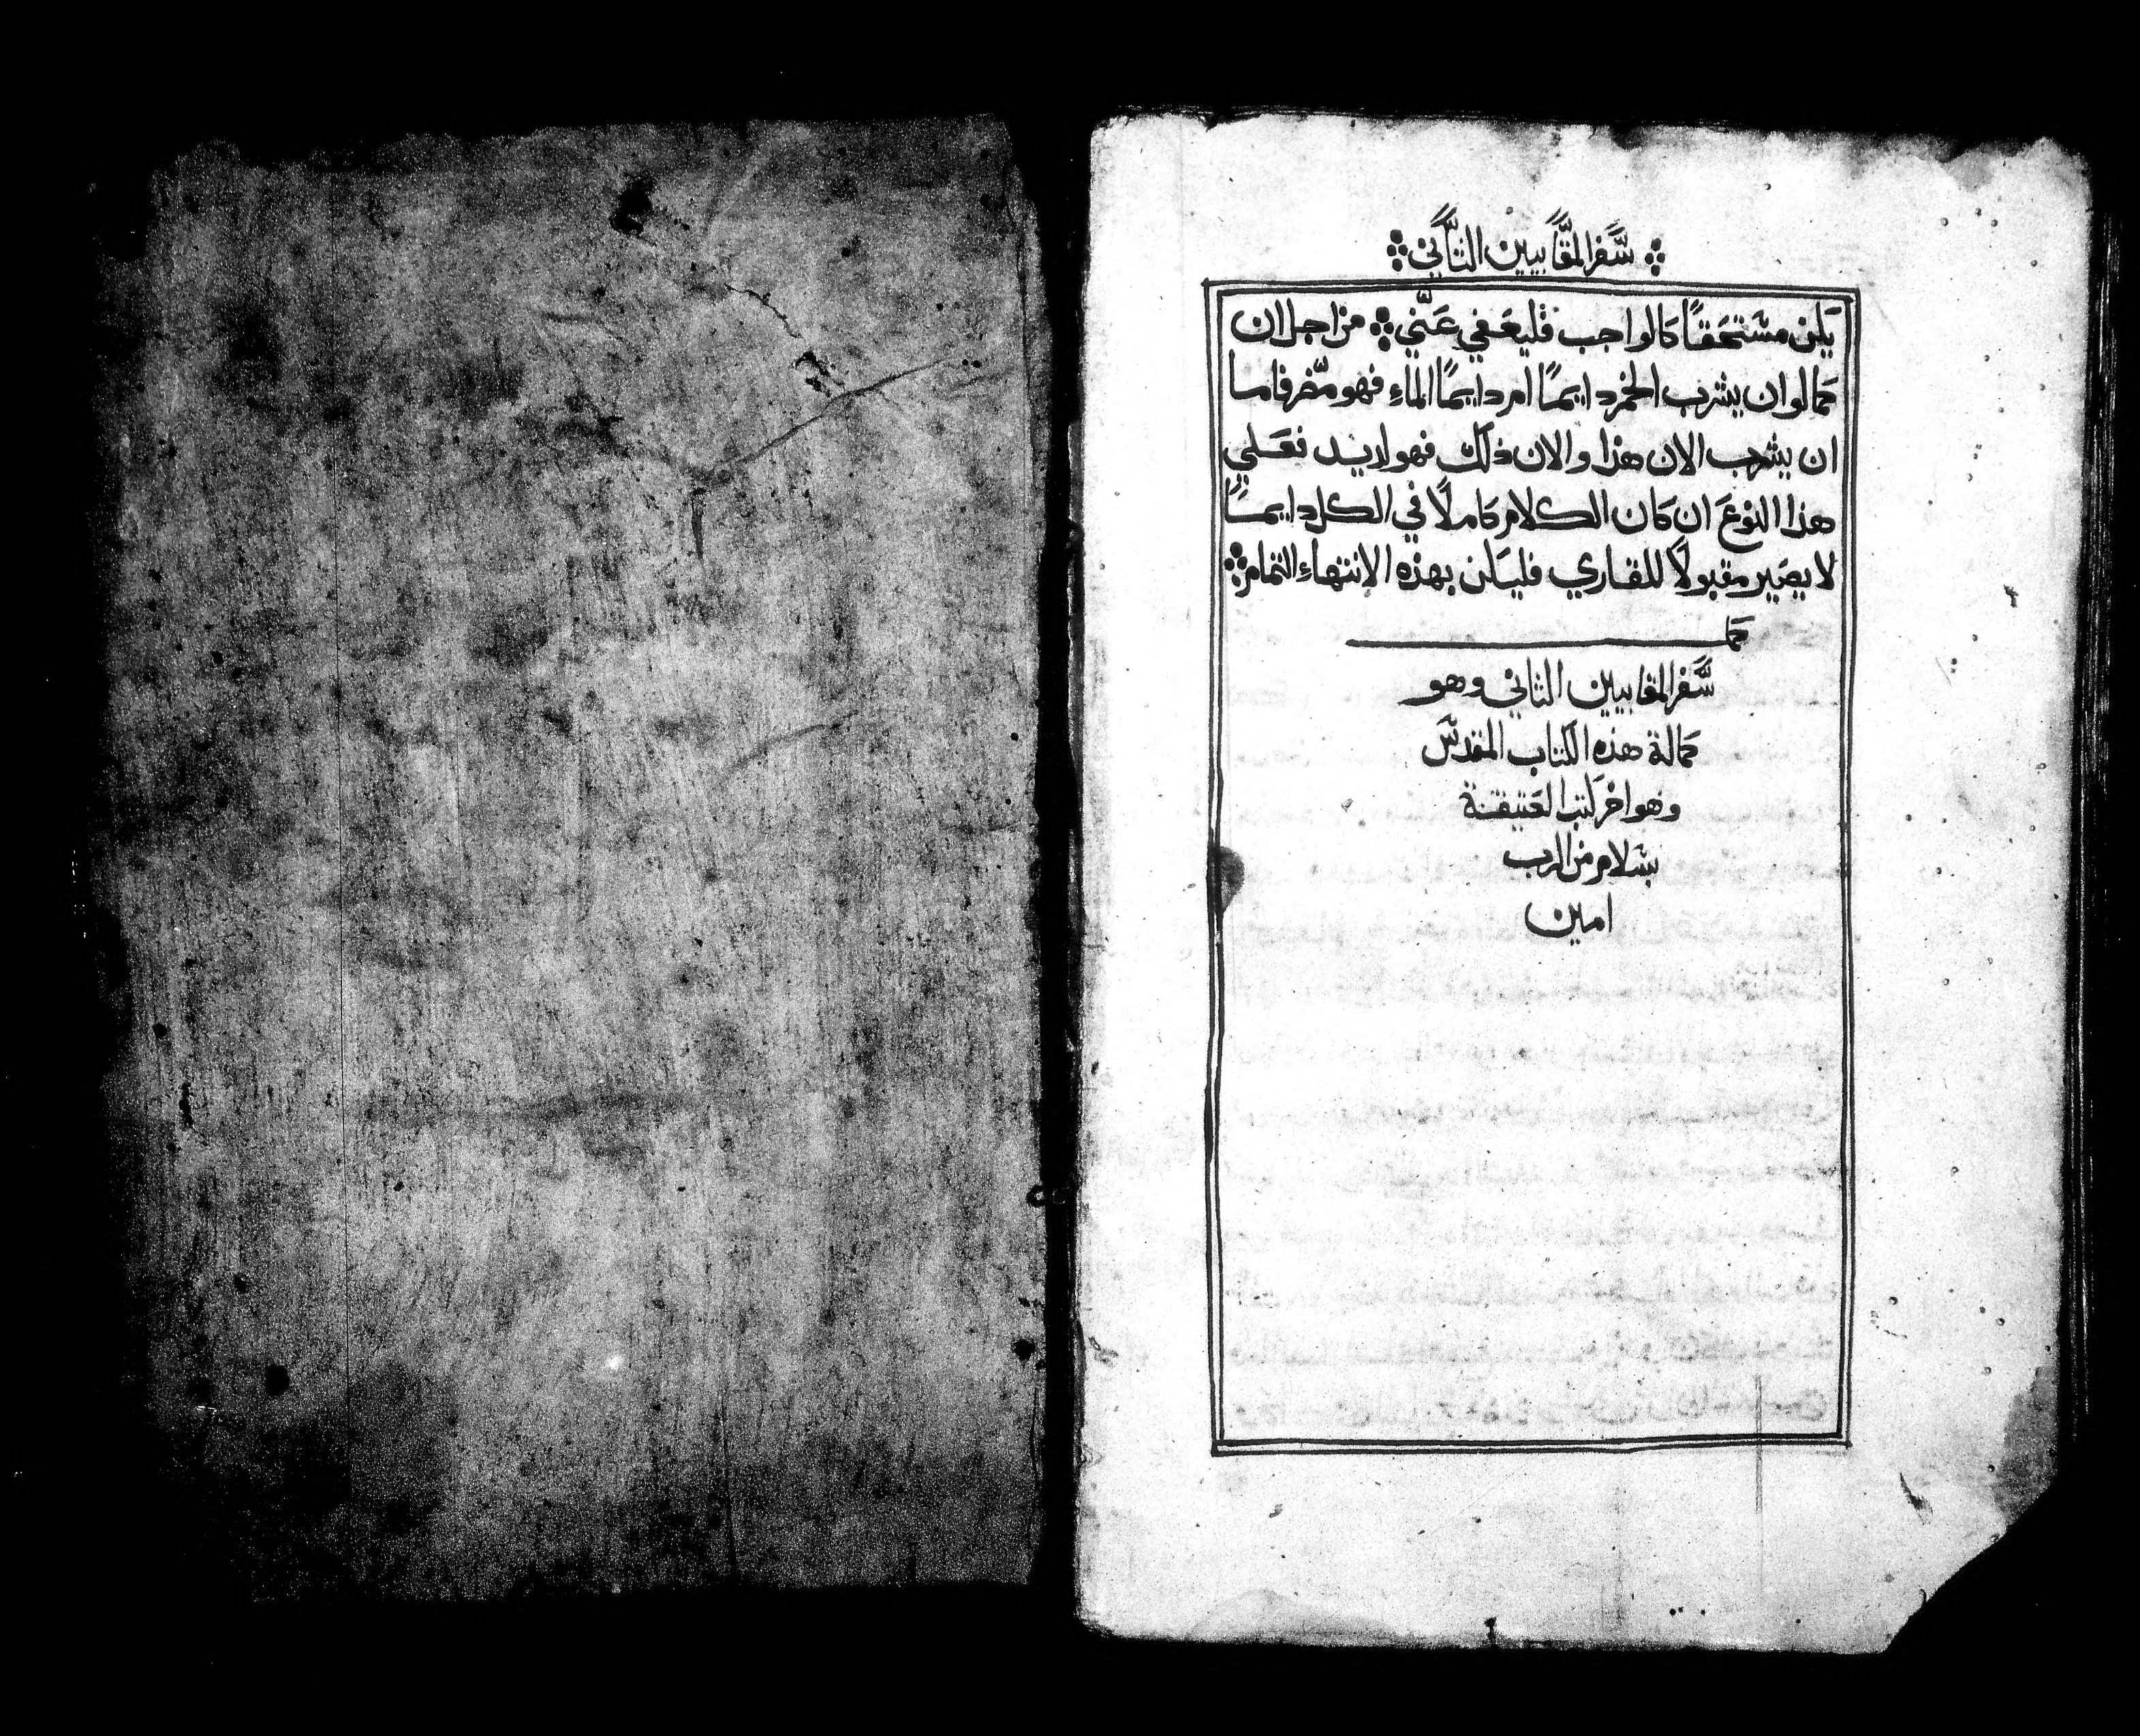 سفر المقابيين التاني
يكن مستحقًا كالواجب فليعفي عني من اجل ان
كما لو ان يشرب الخمر دايمًا امر دايمًا الماء فهو مضر فاما
ان يشرب الان هذا والان ذلك فهو لديد فعلي
هذا النوع ان كان الكلام كاملًا في الكل دايمًا
لا يصير مقبولًا للقاري فليكن بهذه الانتهاء التمام
كما
سفر المقابيين الثاني وهو
كمالة هذه الكتاب المقدس
وهو اخر كتب العتيقة
بسلام من الرب
امين